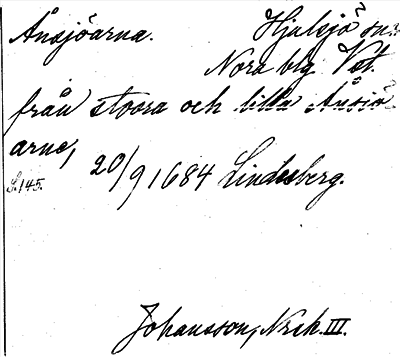 Ånsjöarna. Hjulsjö sn:
Nora blg Vst.
från stoora och lilla Ånsiö
arne,
S. 145. 20/9 1684 Lindesberg.
Johansson, Nrsk. III.